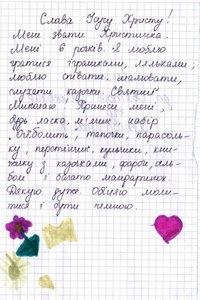 Слава Ісусу Христу!
Мені звати Христинка.
Мені 6 років. Я люблю
гратися іграшками, ляльками,
люблю співати, малювати,
слухати казочки. Святий
Миколаю! Принеси мені,
будь ласка, м'який набір
тапочки, парасоль-
ку, перстінчик, книж-
ку з казками, фарби, аль-
бом і багато мандаринок.
Дякую дуже. Обіцяю моли-
тися і бути чемною.